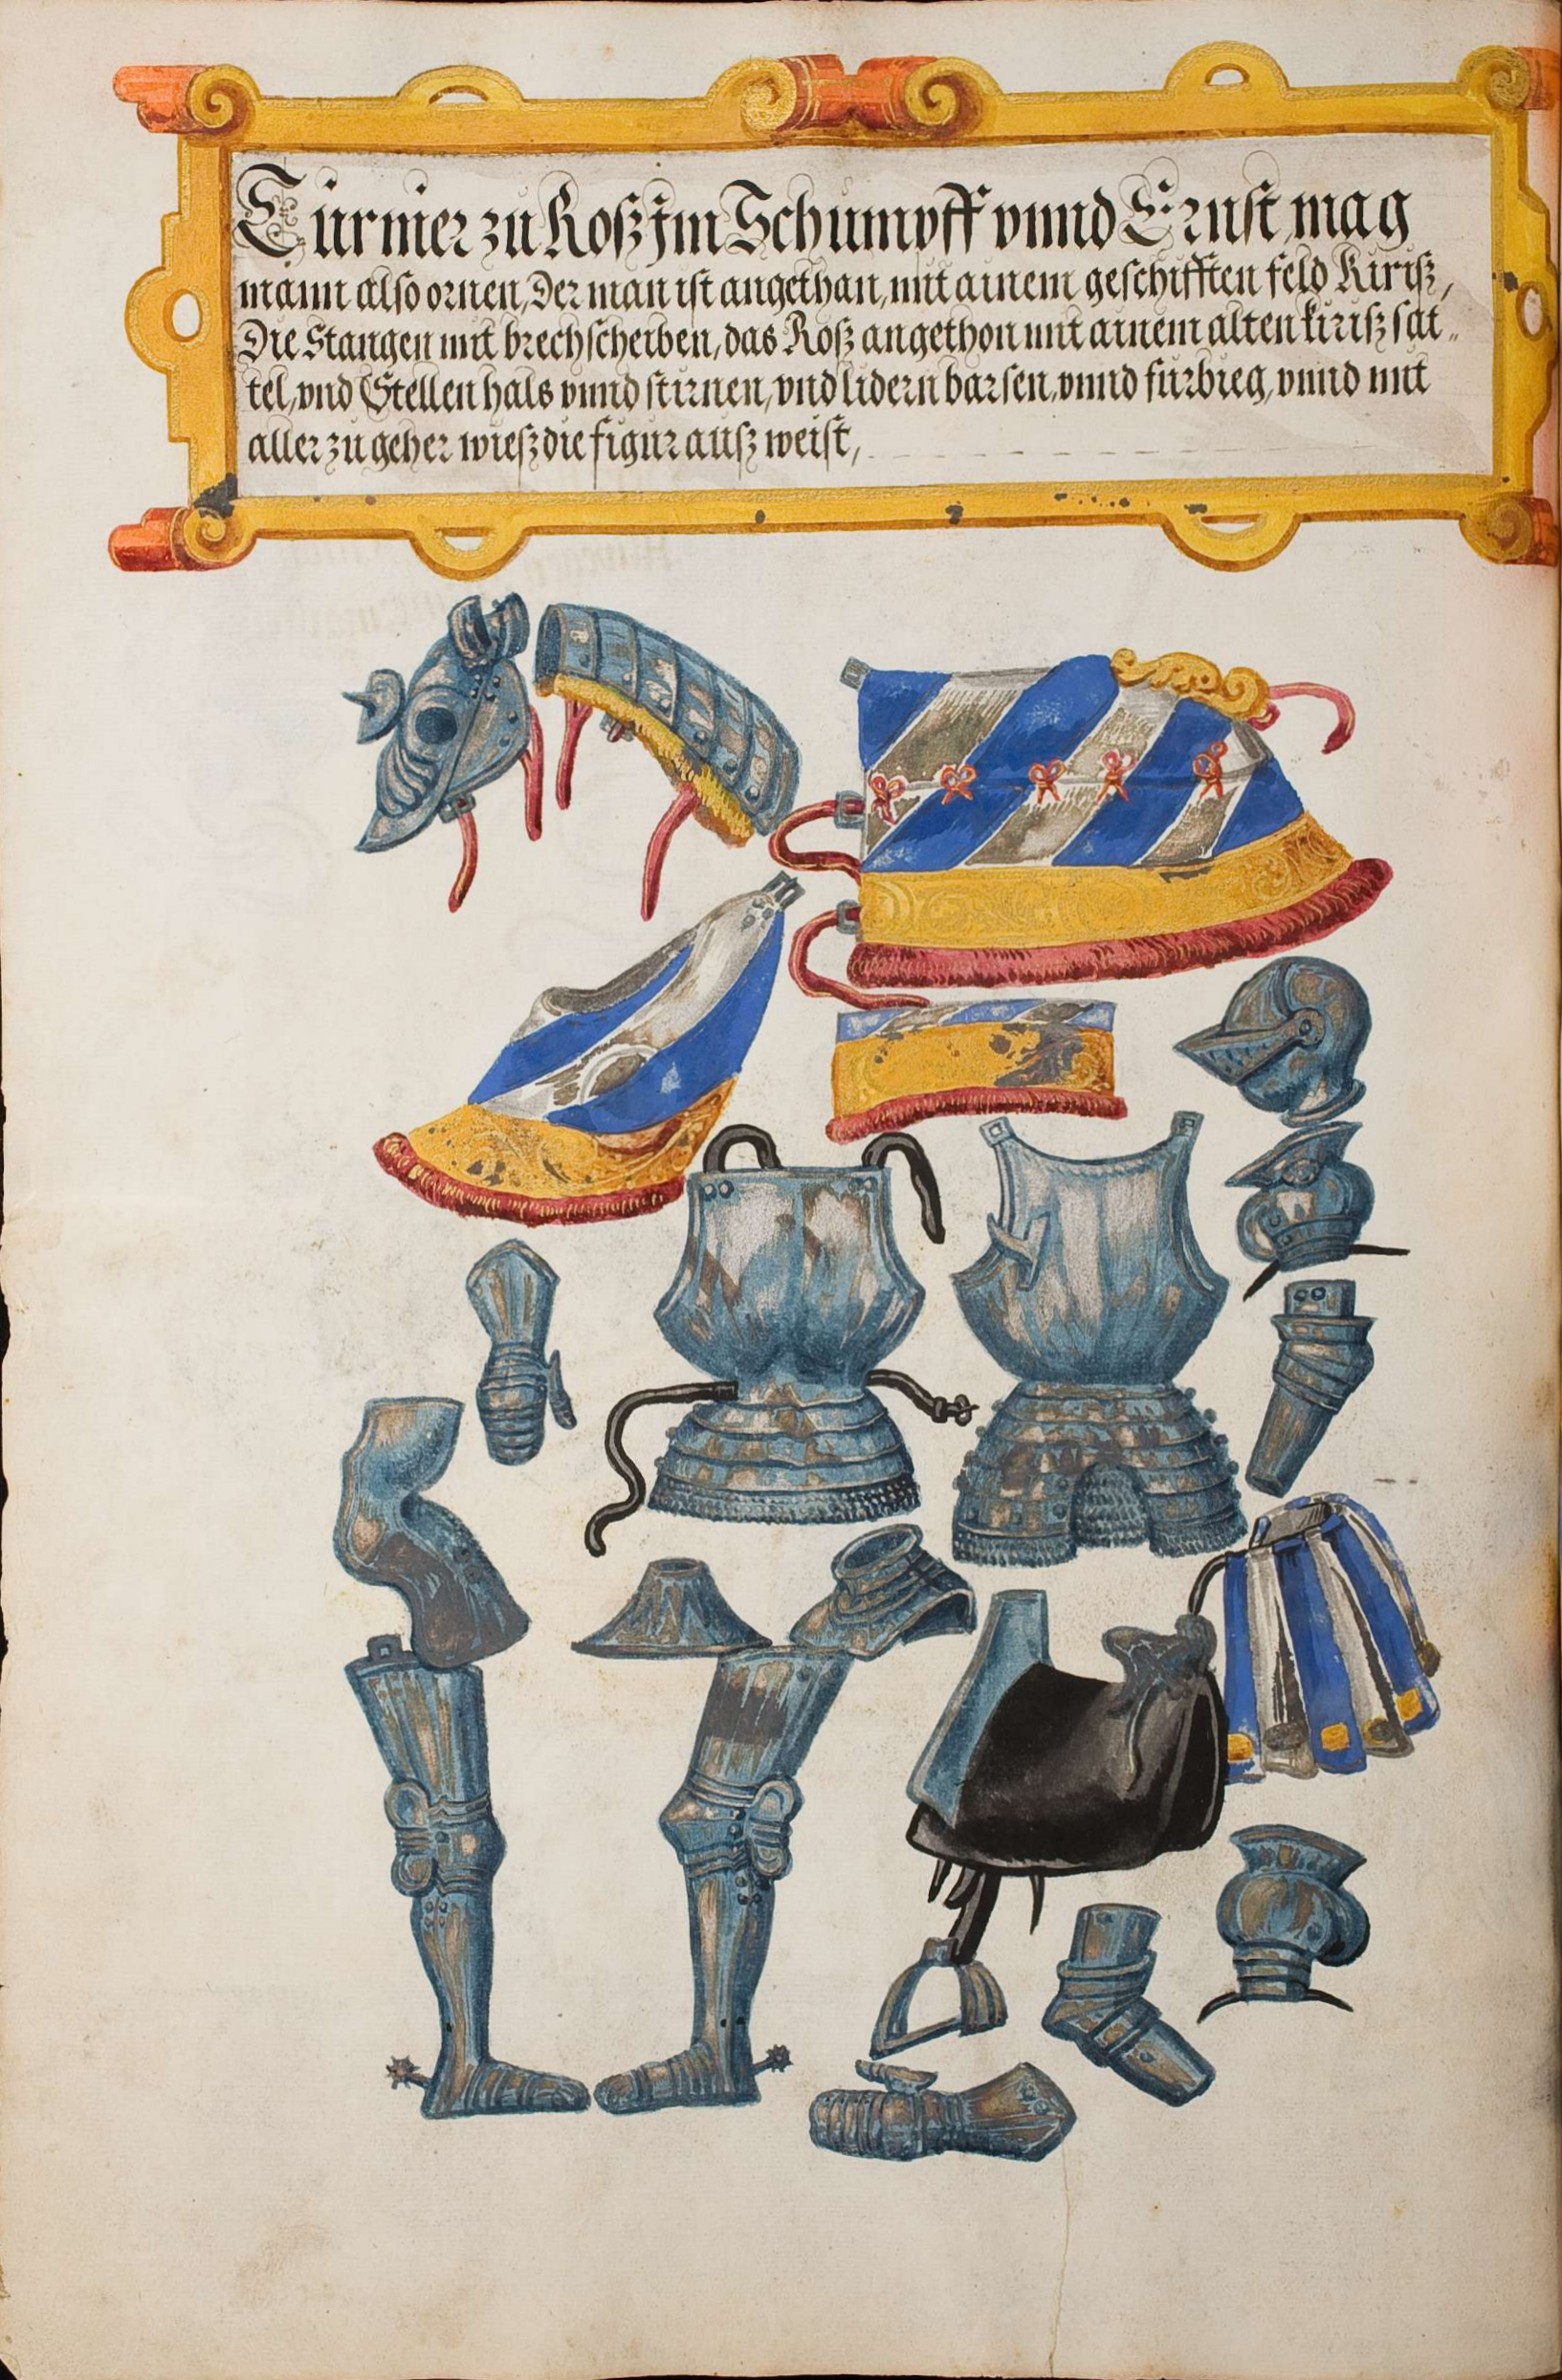 Turnier zu Roß Jm Schumpff vnnd Ernst mag
mann also ornen, Der man ist angethan, mit ainem geschifften feld Kiriß,
Die Stangen mit brechscheiben, das Roß angethon mit ainem alten kiriß sat„
tel, vnd Stellen hals vnnd stirnen, vnd lidern barsen, vnnd fürbieg, vnnd mit
aller zu geher wieß die figur auß weist,